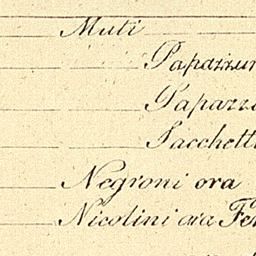 Muti
Papazzur
Papazzo
Sacchetti
Negroni ora
Nicolini ora Fe